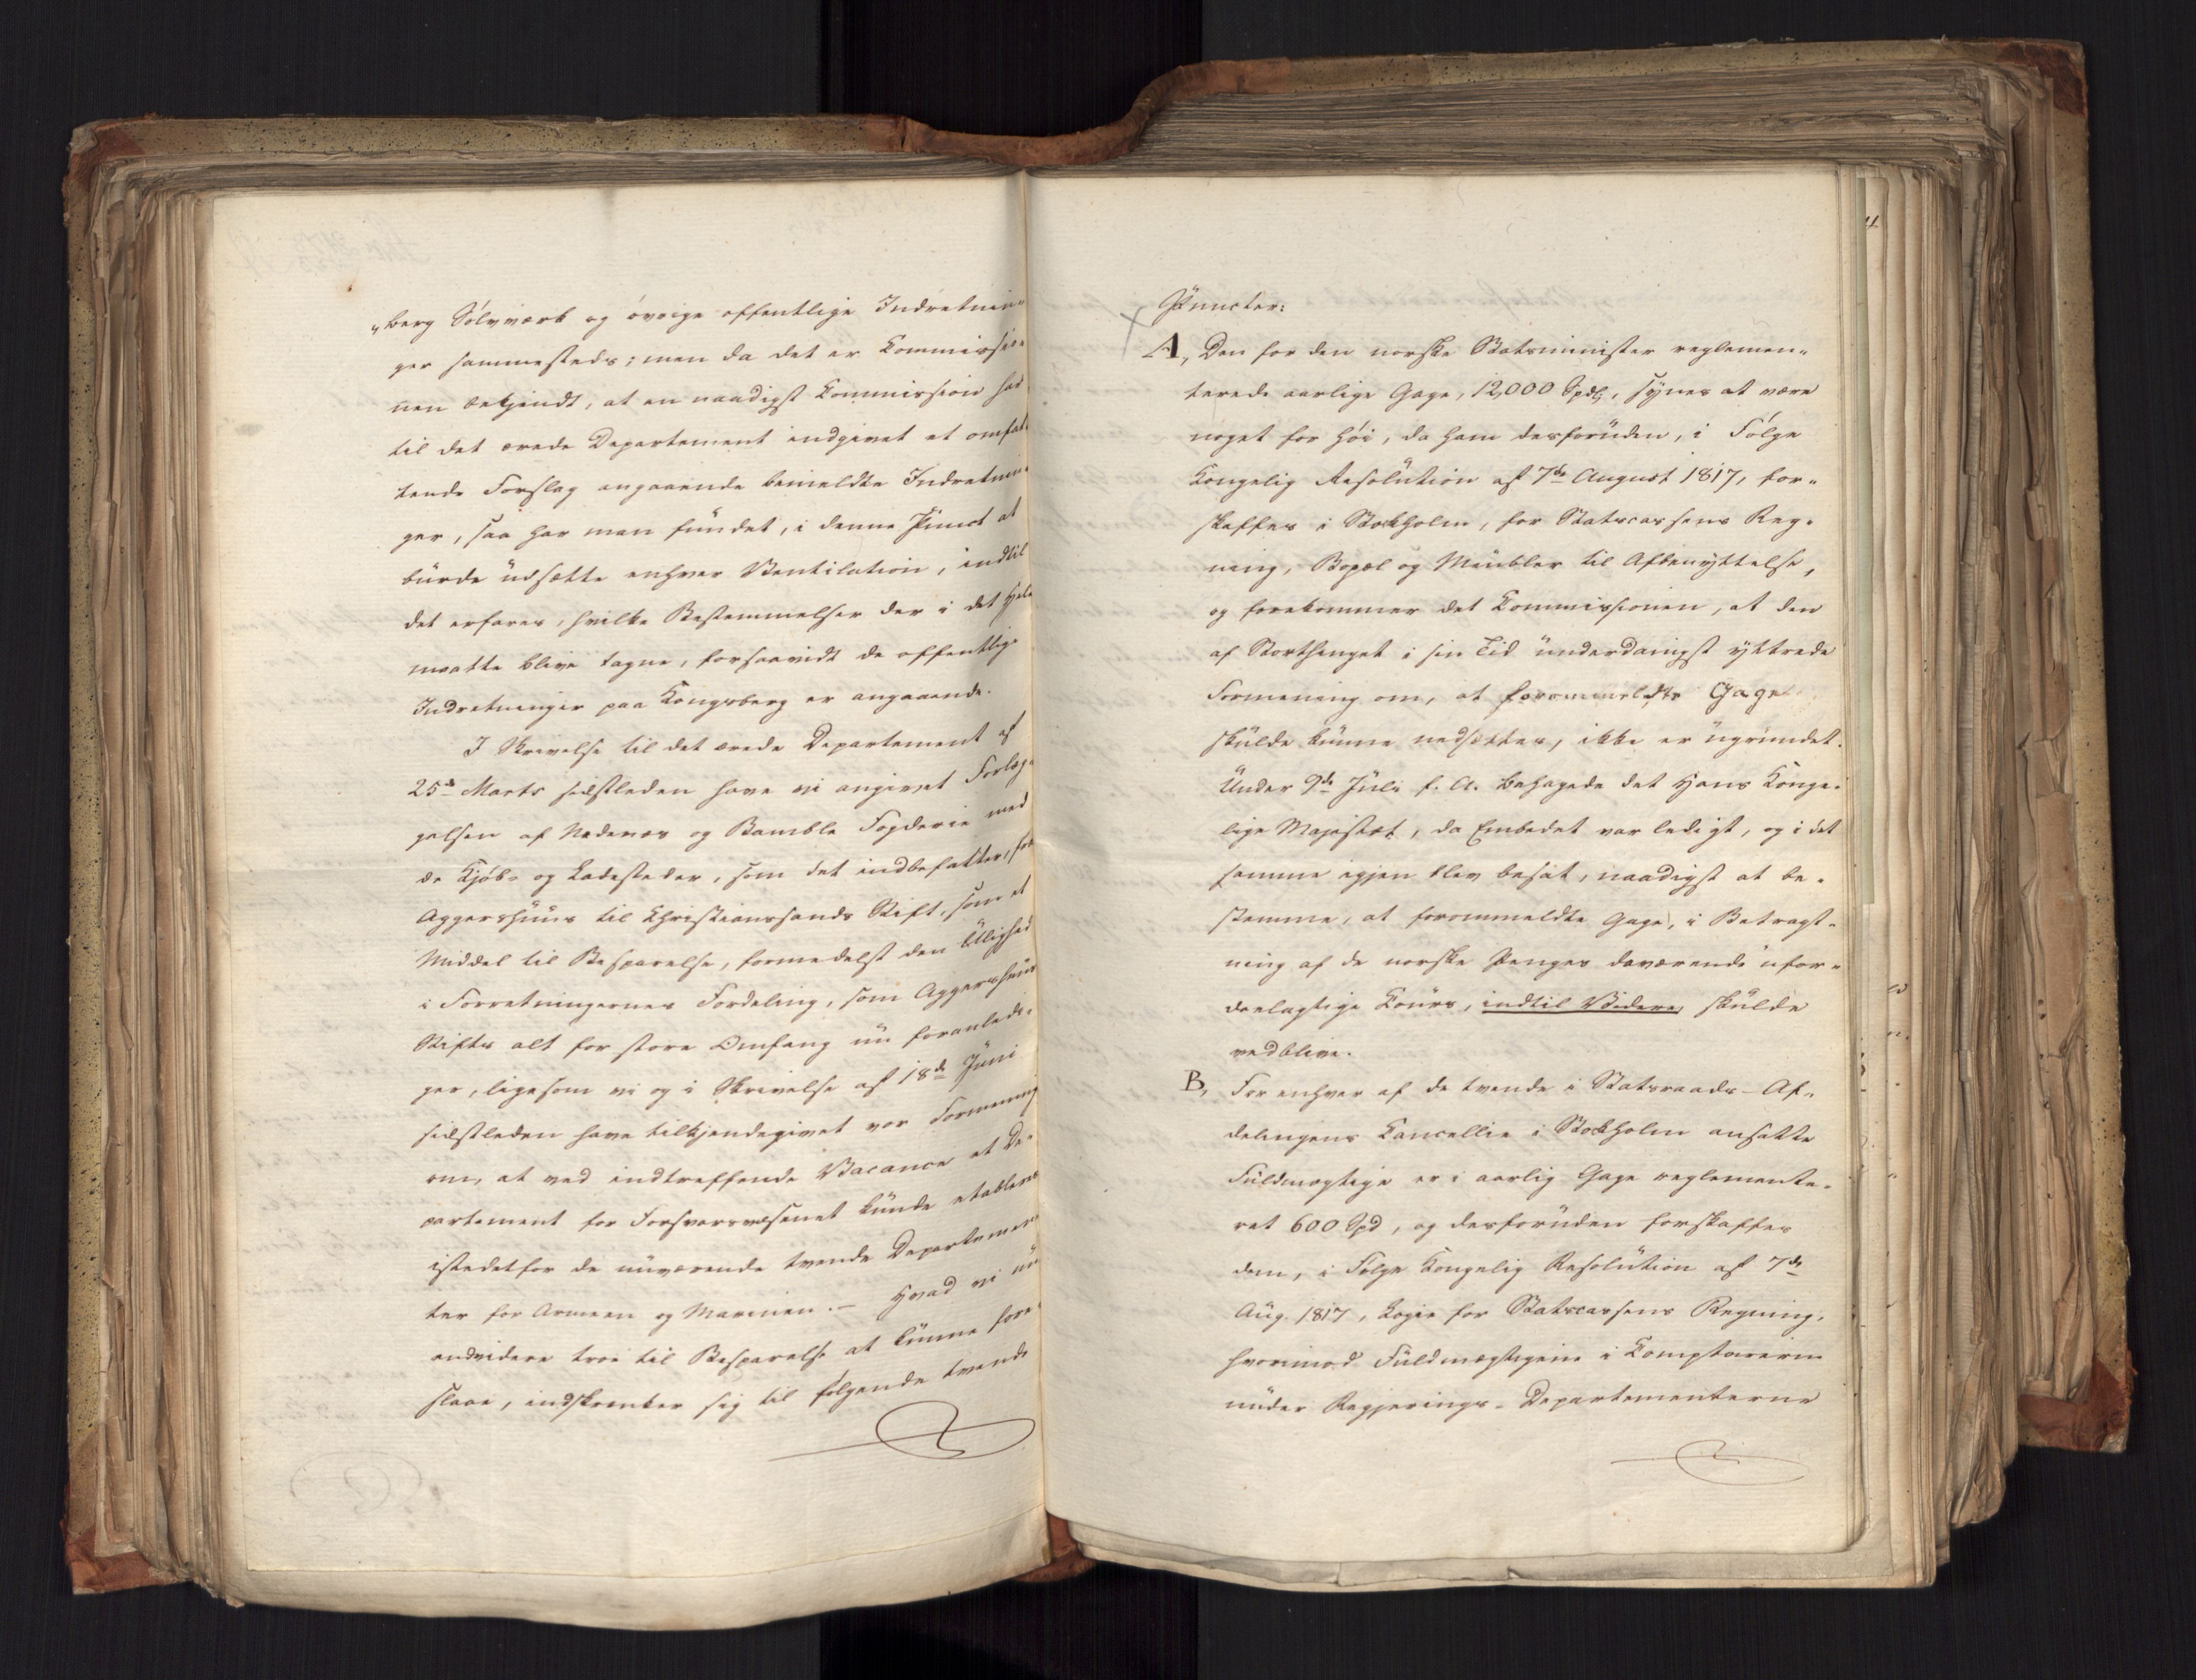 „berg Sølvværk og øvrige offentlige Indretnin„
ger sammesteds; men da det er Commissio„
nen bekjendt, at en naadigst Commission har
til det ærede Departement indgivet et omfat„
tende Forslag angaaende bemeldte Indretnin„
ger, saa har man fundet, i denne Punct at
burde udsætte enhver Ventilation, indtil
det erfares, hvilke Bestemmelser der i det Hele
maatte blive tagne, forsaavidt de offentlige
Indretninger paa Kongsberg er angaaende.
I Skrivelse til det ærede Departement af
25de Marts sidstleden have vi angivet Forlæg„
gelsen af Nedenæs og Bamble Fogderie med
de Kjøb- og Ladesteder, som det indbefatter, fra
Aggershuus til Christianssands Stift, som et
Middel til Besparelse, formedelst den Ulighed
i Forretningernes Fordeling, som Aggershuus
Stifts alt for store Omfang nu foranledi„
ger, ligesom vi og i Skrivelse af 18de Juni
sidstleden have tilkjendegivet vor Formening
om, at ved indtreffende Vacance et De„
partement for Forsvarsvæsenet kunde etableres
istedetfor de nuværende tvende Departemen„
ter for Armeen og Marinen. – Hvad vi nu
endvidere troe til Besparelse at kunne fore„
slaae, indskrænker sig til følgende tvende
Puncter:
A, Den for den norske Statsminister reglemen„
terede aarlige Gage, 12,000 Spdlr, synes at være
noget for høi, da ham desforuden, i Følge
Kongelig Resolution af 7de August 1817, for„
skaffes i Stokholm, for Statscassens Reg„
ning, Bopæl og Meubler til Afbenyttelse,
og forekommer det Commissionen, at den
af Storthinget i sin Tid underdanigst yttrede
Formening om, at forommeldte Gage
skulde kunne nedsættes, ikke er ugrundet.
Under 9de Juli f. A. behagede det Hans Konge„
lige Majestæt, da Embedet var ledigt, og i det
samme igjen blev besat, naadigst at be„
stemme, at forommeldte Gage, i Betragt„
ning af de norske Penges daværende ufor„
deelagtige Cours, indtil Videre skulde
vedblive.
B, For enhver af de tvende i Statsraads-Af„
delingens Cancellie i Stokholm ansatte
Fuldmægtige er i aarlig Gage reglemente„
ret 600 Spd, og desforuden forskaffes
dem, i Følge Kongelig Resolution af 7de
Aug. 1817, Logie for Statscassens Regning,
hvorimod Fuldmægtigene i Comptoirerne
under Regjerings-Departementerne